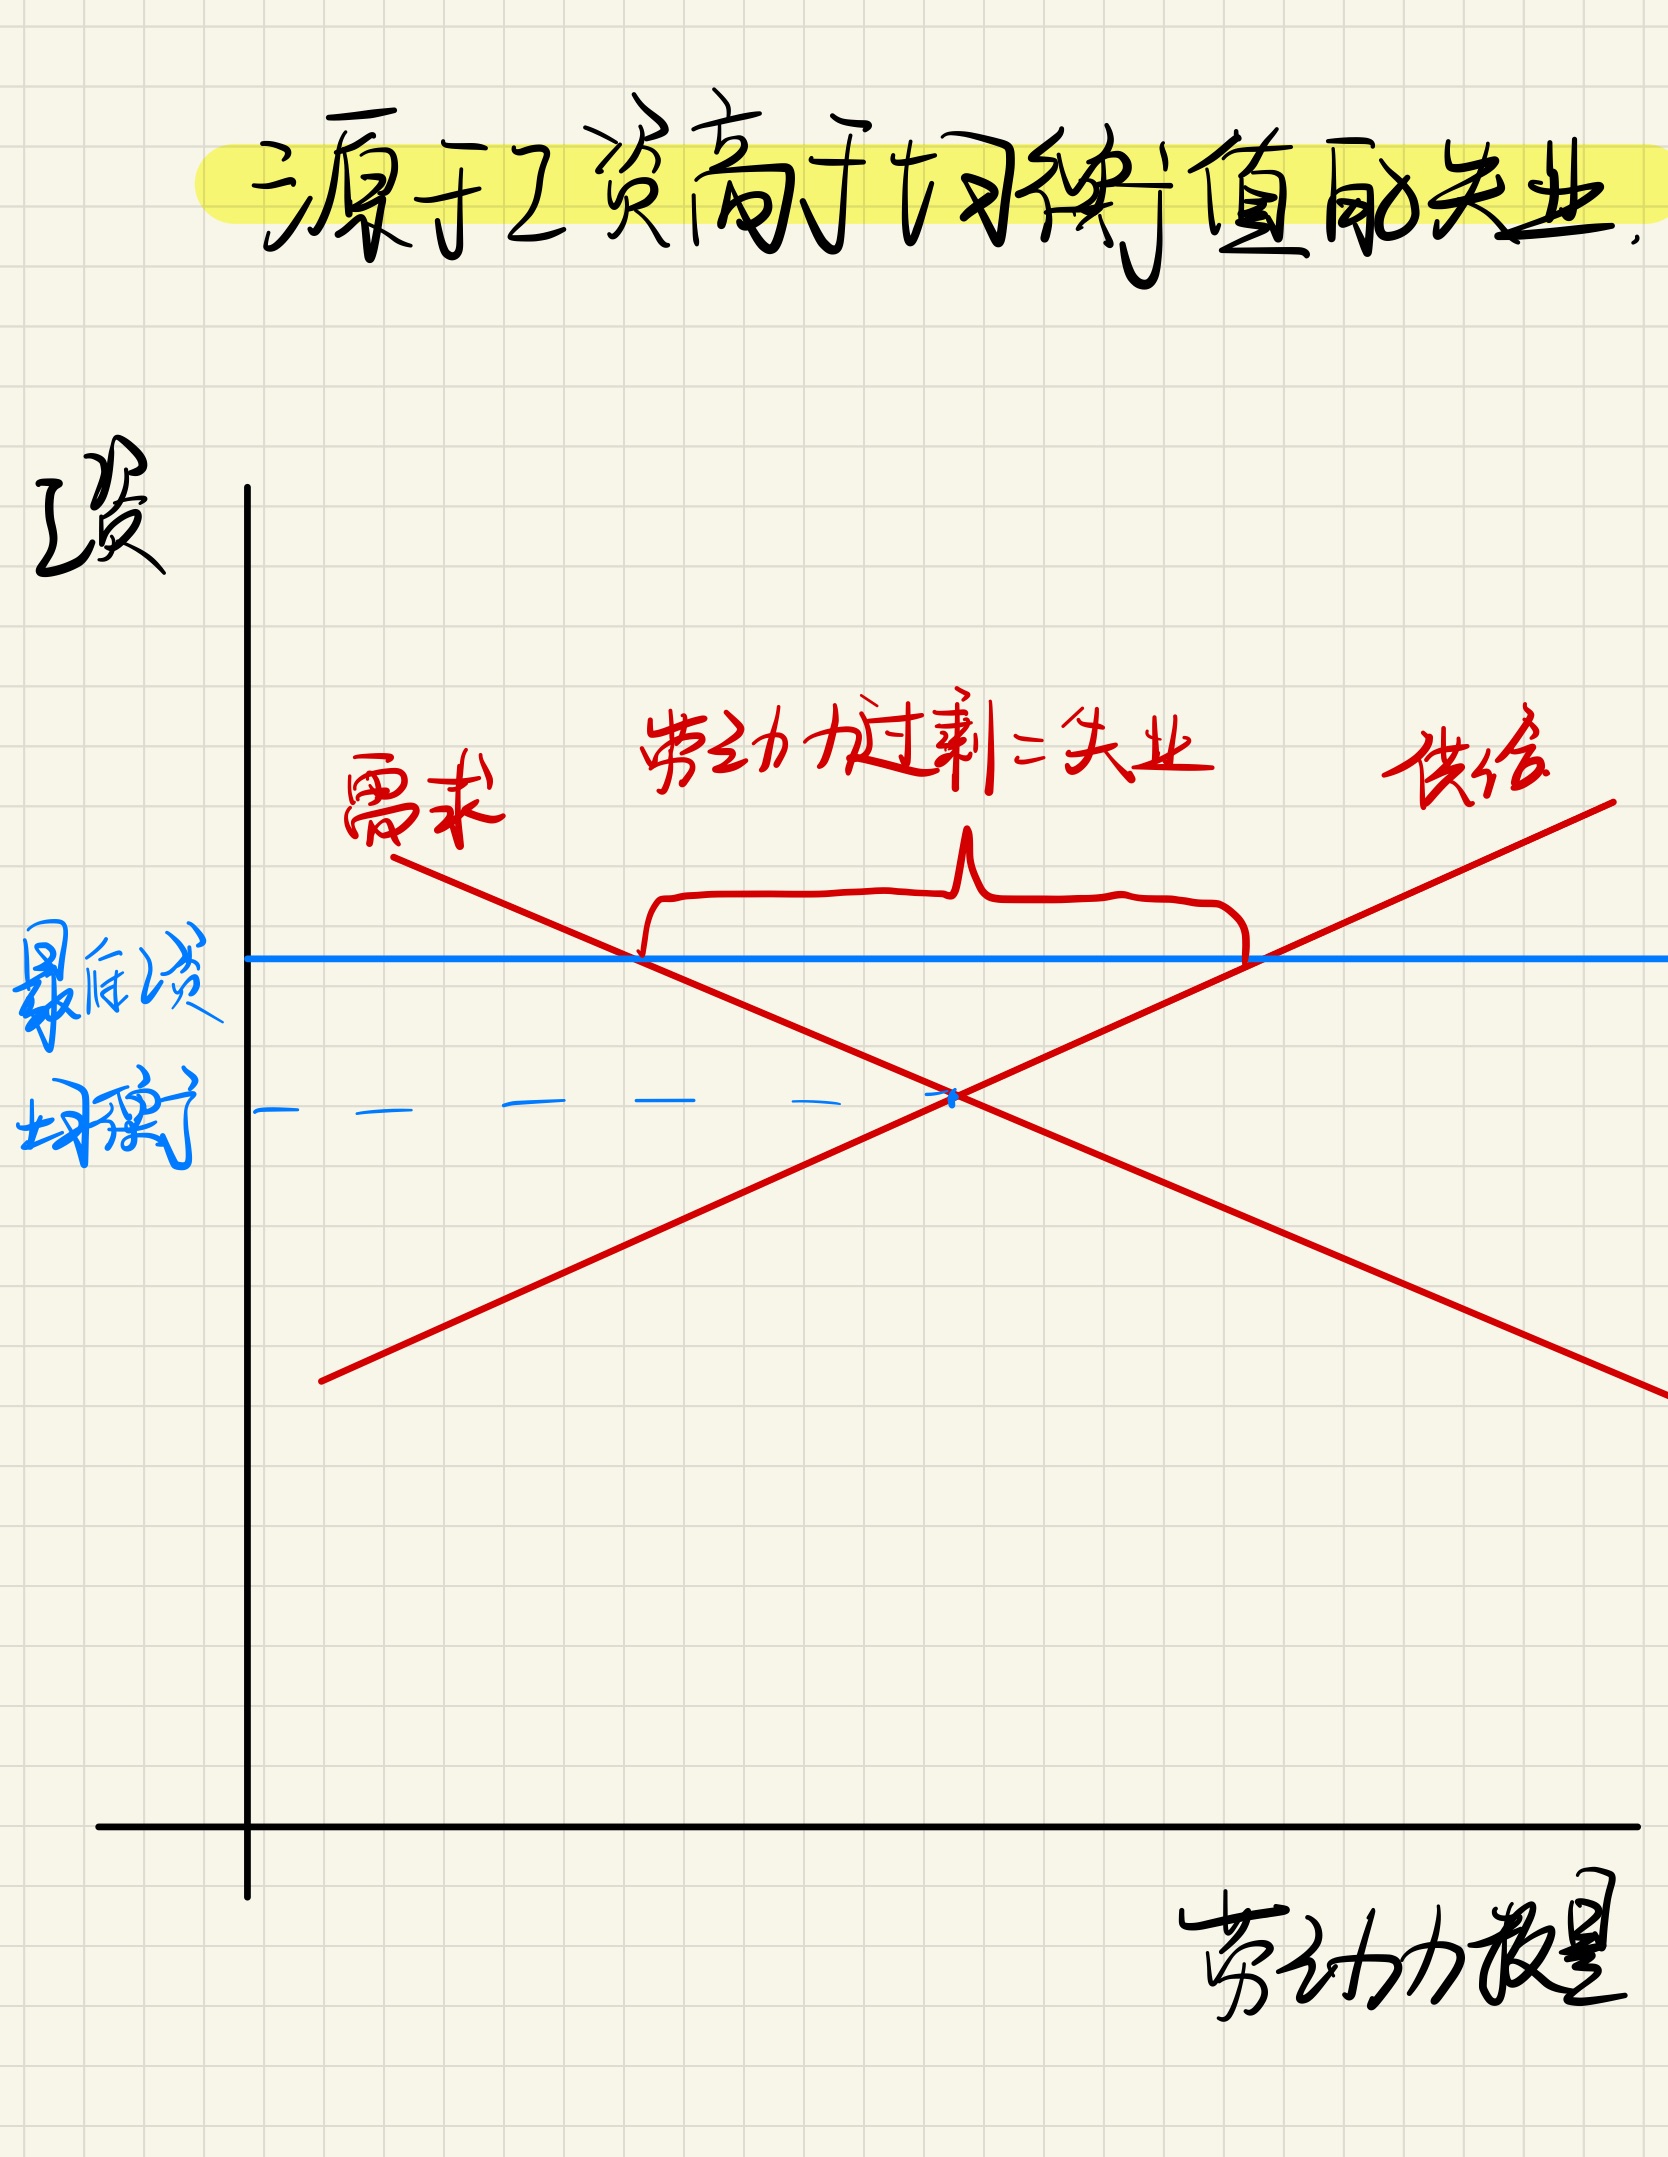 源于工资高于均衡值的失业.
工资
劳动力过剩=失业
需求
供给
最低工资
均衡
劳动力数量